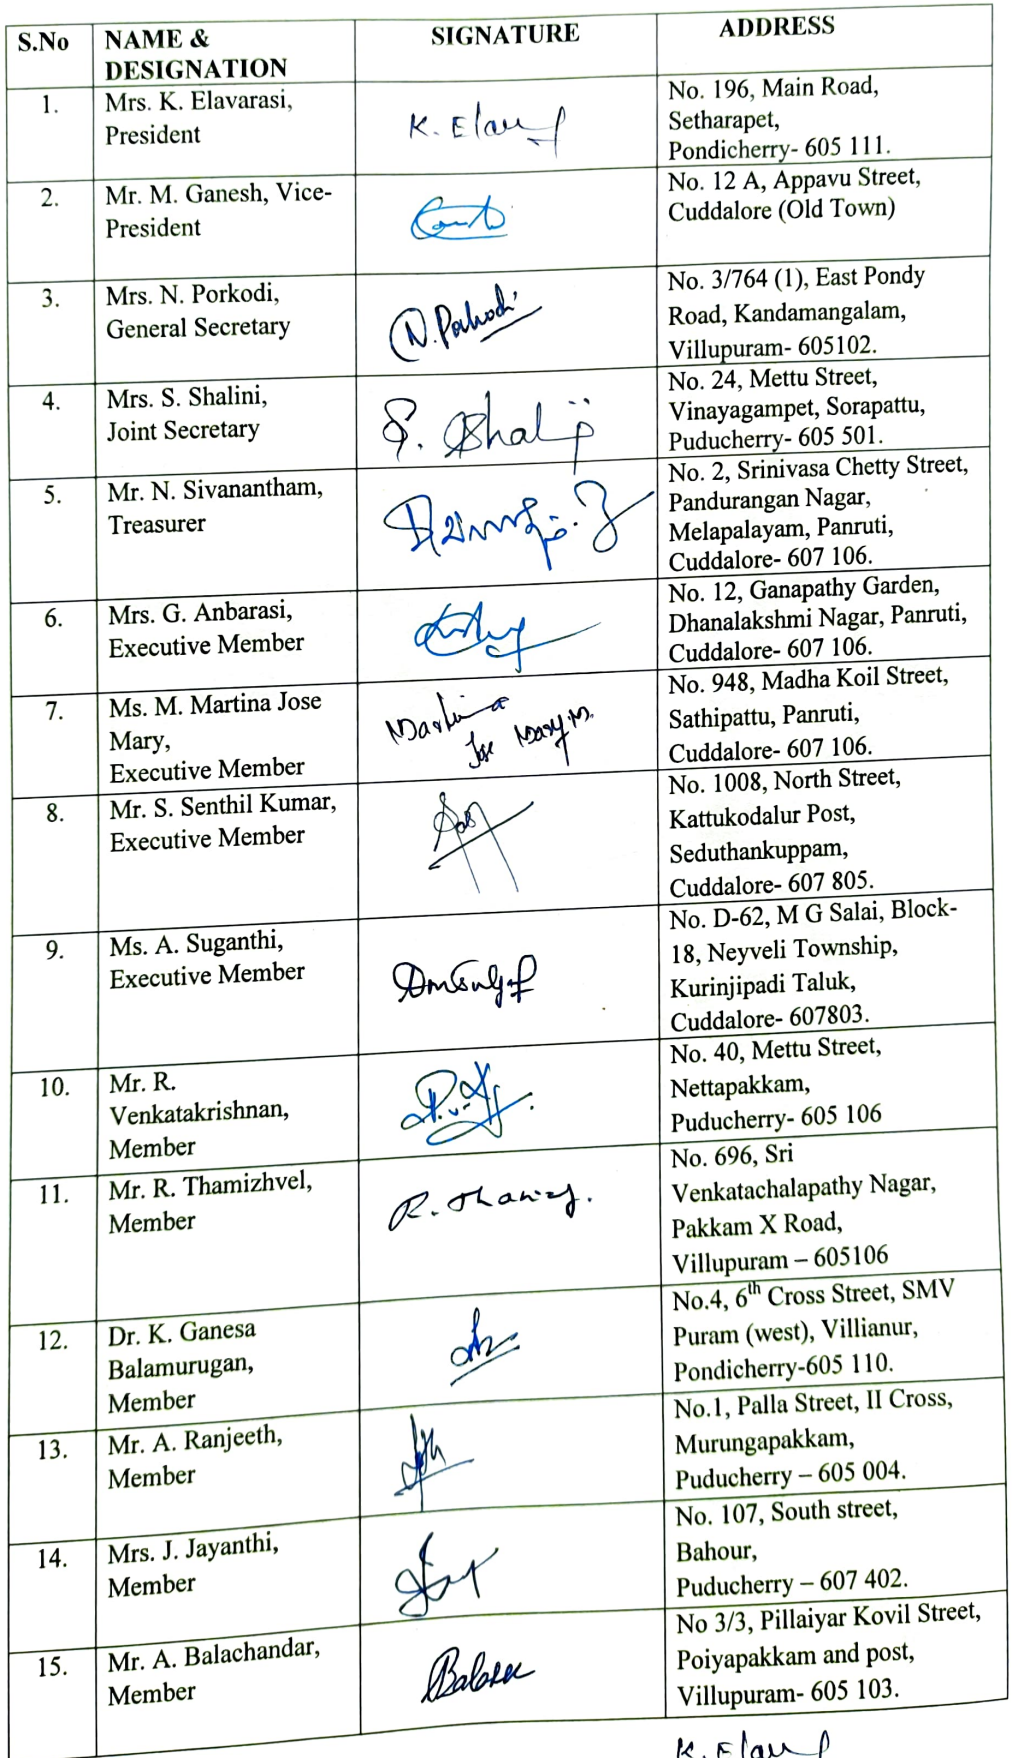 S.No NAME & DESIGNATION SIGNATURE ADDRESS
1. Mrs. K. Elavarasi,
President
K. Elau
No. 196, Main Road,
Setharapet,
Pondicherry- 605 111.
2. Mr. M. Ganesh, Vice-
President
No. 12 A, Appavu Street,
Cuddalore (Old Town)
3. Mrs. N. Porkodi,
General Secretary
N. Porkodi
No. 3/764 (1), East Pondy
Road, Kandamangalam,
Villupuram- 605102.
4. Mrs. S. Shalini,
Joint Secretary
S. Shalini
No. 24, Mettu Street,
Vinayagampet, Sorapattu,
Puducherry- 605 501.
5. Mr. N. Sivanantham,
Treasurer
No. 2, Srinivasa Chetty Street,
Pandurangan Nagar,
Melapalayam, Panruti,
Cuddalore- 607 106.
6. Mrs. G. Anbarasi,
Executive Member
No. 12, Ganapathy Garden,
Dhanalakshmi Nagar, Panruti,
Cuddalore- 607 106.
7. Ms. M. Martina Jose
Mary,
Executive Member
Martina
Jose Mary.M.
No. 948, Madha Koil Street,
Sathipattu, Panruti,
Cuddalore- 607 106.
8. Mr. S. Senthil Kumar,
Executive Member
No. 1008, North Street,
Kattukodalur Post,
Seduthankuppam,
Cuddalore- 607 805.
9. Ms. A. Suganthi,
Executive Member
No. D-62, M G Salai, Block-
18, Neyveli Township,
Kurinjipadi Taluk,
Cuddalore- 607803.
10. Mr. R.
Venkatakrishnan,
Member
No. 40, Mettu Street,
Nettapakkam,
Puducherry- 605 106
11. Mr. R. Thamizhvel,
Member
No. 696, Sri
Venkatachalapathy Nagar,
Pakkam X Road,
Villupuram – 605106
12. Dr. K. Ganesa
Balamurugan,
Member
No.4, 6th Cross Street, SMV
Puram (west), Villianur,
Pondicherry-605 110.
13. Mr. A. Ranjeeth,
Member
No.1, Palla Street, II Cross,
Murungapakkam,
Puducherry – 605 004.
14. Mrs. J. Jayanthi,
Member
No. 107, South street,
Bahour,
Puducherry – 607 402.
15. Mr. A. Balachandar,
Member
No 3/3, Pillaiyar Kovil Street,
Poiyapakkam and post,
Villupuram- 605 103.
K. Elau